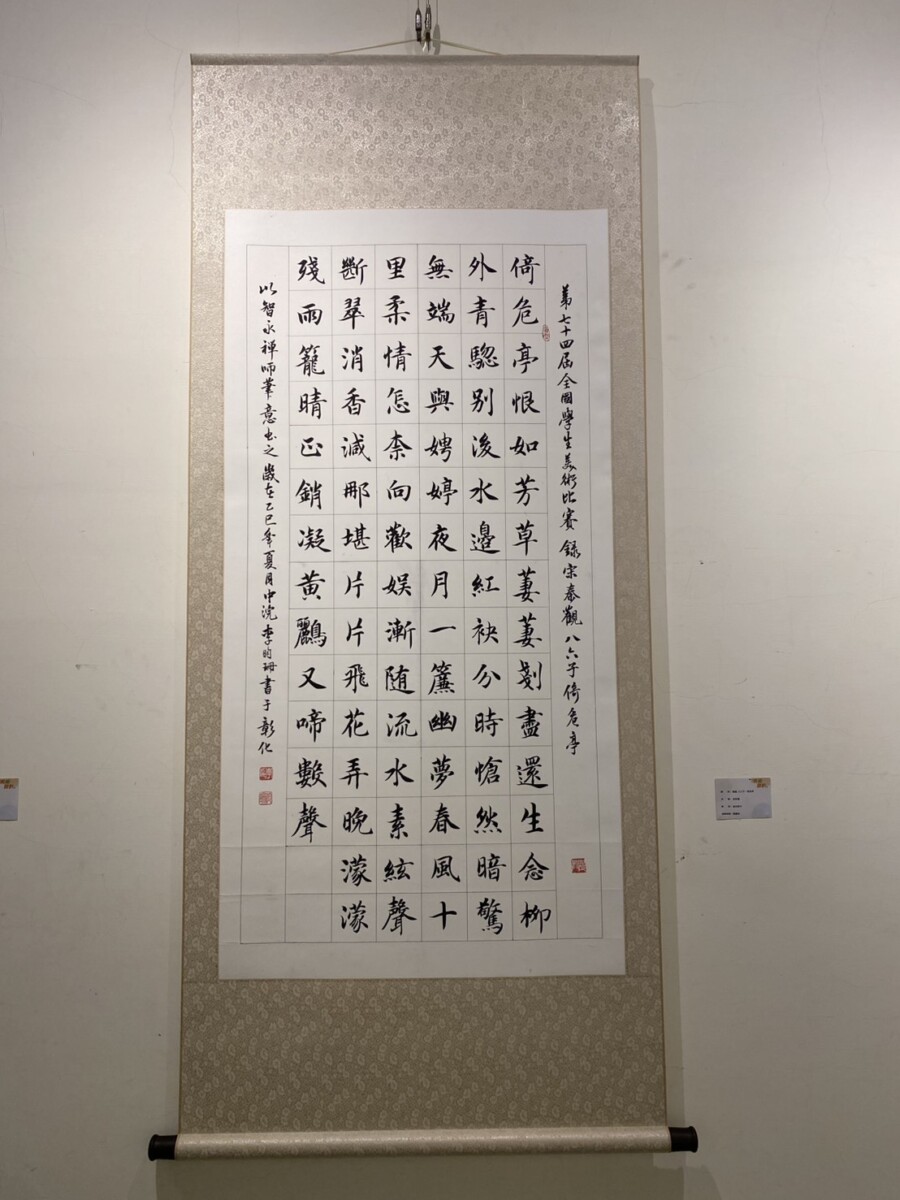 第七十四屆全國學生美術比賽 錄宋秦觀八六子倚危亭
倚危亭恨如芳草萋萋剗盡還生念柳
外青驄別後水邊紅袂分時愴然暗驚
無端天與娉婷夜月一簾幽夢春風十
里柔情怎柰向歡娛漸随流水素絃聲
斷翠消香減那堪片片飛花弄晚濛濛
殘雨籠晴正銷凝黃鸝又啼數聲
以智永禪師筆意書之 歲在乙巳年夏月中浣李昀珊書于彰化